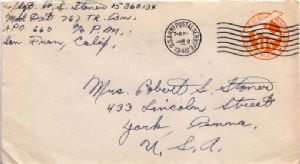 Sgt. W. S. Stoner 15360134
Med Det 767 T.R. Bn.
APO 660 % P.M.
San Fran, Calif.
U.S. ARMY POSTAL SERVICE
1946
Mrs. Robert S. Stoner
433 Lincoln Street
York Penna.
U. S. A.